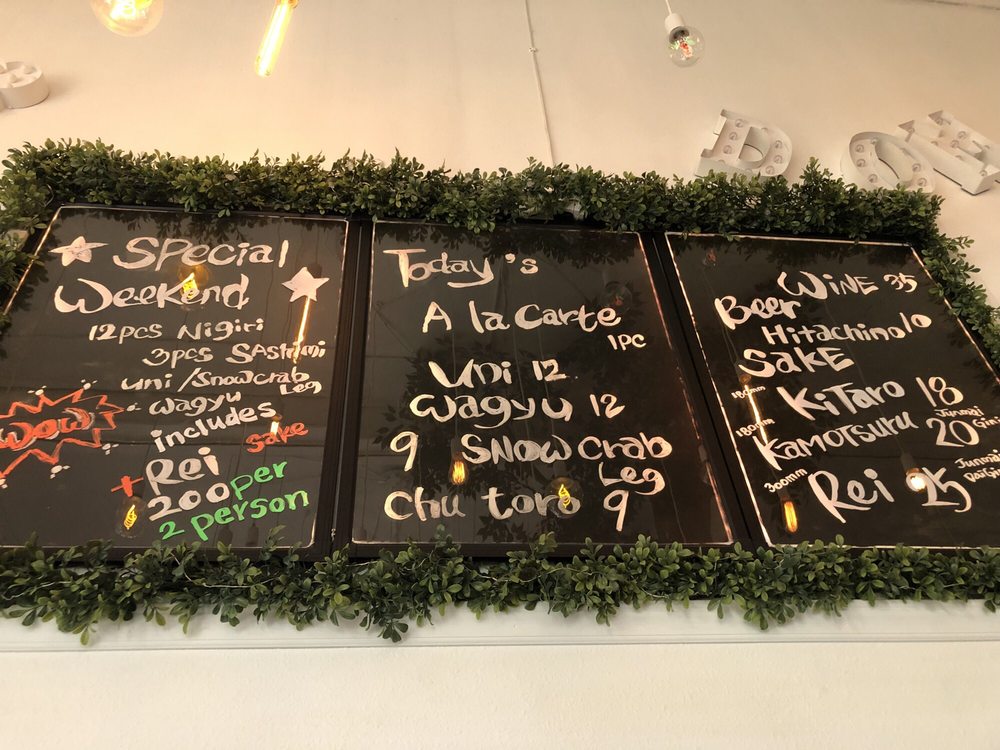 D
Special
Weekend
12pcs Nigiri
3pcs Sashimi
uni / Snow crab
Leg
wagyu
includes
WOW
sake
+ Rei
200 per
2 person
Today's
A la Carte
1pc
Uni 12
Wagyu 12
9 Snow crab
Leg
Chu toro 9
Wine 35
Beer
Hitachino 10
Sake
180mm
Kitaro 18
180mm
Kamotsuru 20
Junmai
Gin
300mm
Rei 25
Junmai
DaiGi